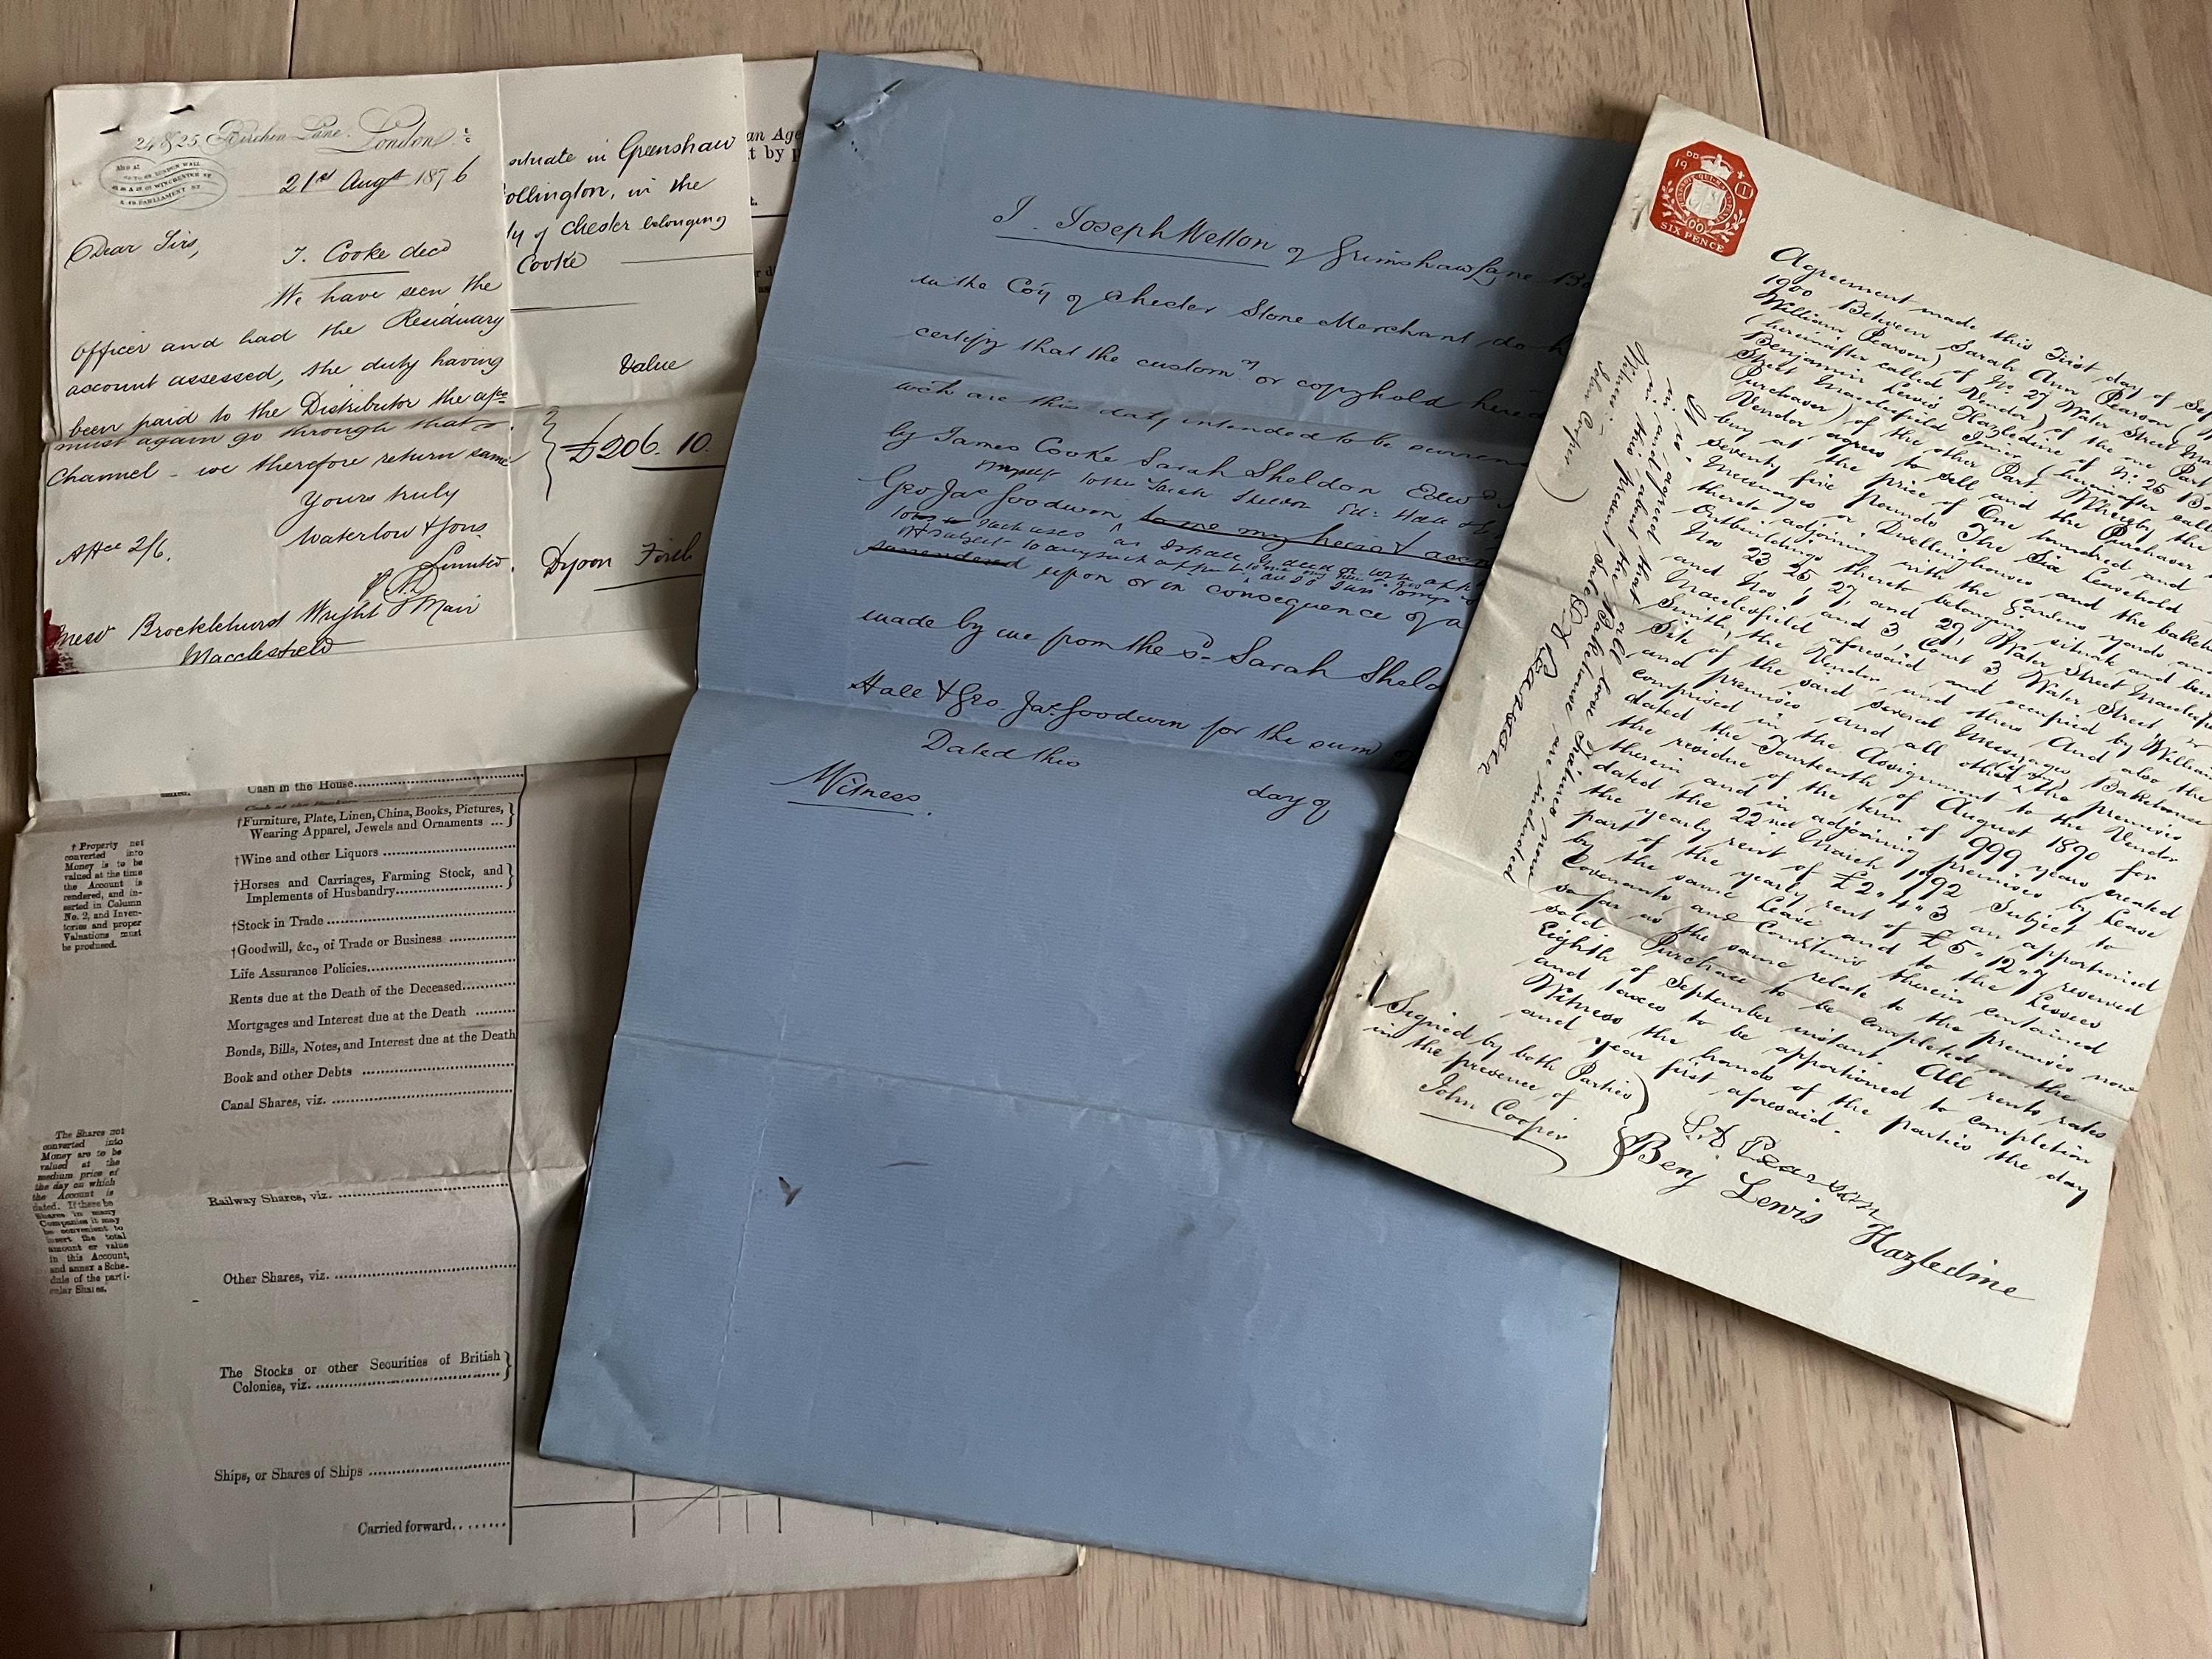 24 & 25, Birchin Lane. London
AND AT
LONDON WALL
WINCHESTER ST
& 49, PARLIAMENT ST.
21st Augt 1876
Dear Sirs,
T. Cooke decd
We have seen the
Officer and had the Residuary
account assessed, the duty having
been paid to the Distributor the
must again go through that
Channel - we therefore return same
Yours truly
Waterlow & Sons
Limited.
Messrs Brocklehurst Wright & Mair
Macclesfield
situate in Greenshaw
ollington, in the
ty of Chester belonging
Cooke
Value
£206. 10.
Dyson Firth
an Age
t by p
Cash in the House
†Furniture, Plate, Linen, China, Books, Pictures,
Wearing Apparel, Jewels and Ornaments ...
†Wine and other Liquors
†Horses and Carriages, Farming Stock, and
Implements of Husbandry
†Stock in Trade
†Goodwill, &c., of Trade or Business
Life Assurance Policies
Rents due at the Death of the Deceased
Mortgages and Interest due at the Death
Bonds, Bills, Notes, and Interest due at the Death
Book and other Debts
Canal Shares, viz.
Railway Shares, viz.
Other Shares, viz.
The Stocks or other Securities of British
Colonies, viz.
Ships, or Shares of Ships
Carried forward
† Property not
converted into
Money is to be
valued at the time
the Account is
rendered, and in-
serted in Column
No. 2, and Inven-
tories and proper
Valuations must
be produced.
The Shares not
converted into
Money are to be
valued at the
medium price of
the day on which
the Account is
dated. If there be
Shares in many
Companies it may
be convenient to
insert the total
amount or value
in this Account,
and annex a Sche-
dule of the parti-
cular Shares.
I. Joseph Wetton of Grimshaw Lane Bo
in the Coy of Chester Stone Merchant do h
certify that the custom.y or copyhold hered
wch are this day intended to be surren
by James Cooke Sarah Sheldon Edwd
myself to the Sarah Sheldon Ed: Hall
Geo Jas Goodwin to me my heirs & assns
to such uses as I shall by deed or will
surrendered upon or in consequence of a
made by me from the sd. Sarah Sheld
Hall & Geo. Jas. Goodwin for the sum
Dated this day of
Witness.
DD
19
SIX PENCE
Agreement made this First day of Se
1900 Between Sarah Ann Pearson
William Pearson) of No. 27 Water Street Ma
(hereinafter called Vendor) of the one Part
Benjamin Lewis Hazledine of No. 25
Street Macclesfield Joiner (hereinafter call
Purchaser) of the other Part Whereby the
Vendor agrees to sell and the Purchaser
buy at the price of One hundred and
seventy five pounds The Six Leasehold
Messuages or Dwellinghouses and the bakeh
thereto adjoining with the Gardens yards an
Outbuildings thereto belonging situate and bei
Nos 23, 25, 27, and 29, Water Street Macclesfi
and Nos 1 and 3, Court 3 Water Street
Macclesfield aforesaid and occupied by William
Smith, the Vendor, and others And also the
Site of the said several Messuages, Bakehouse
and premises and all other the premises
comprised in the Assignment to the Vendor
dated the Fourteenth of August 1890 for
the residue of the term of 999 years created
therein and in adjoining premises by Lease
dated the 22nd March 1792 Subject to
the yearly rent of £2 " 4 " 3 an apportioned
part of the yearly rent of £5 " 12 " 7 reserved
by the same Lease and to the Lessees
Covenants and Conditions therein contained
so far as the same relate to the premises now
sold Purchase to be completed on the
Eighth of September instant All rents rates
and taxes to be apportioned to completion
Witness the hands of the parties the day
and year first aforesaid.
Signed by both Parties
in the presence of
John Cooper
S. A. Pearson
Benj Lewis Hazledine
It is agreed that all loose fixtures now
in and about the Bakehouse are included
in this present Sale
Witness
John Cooper